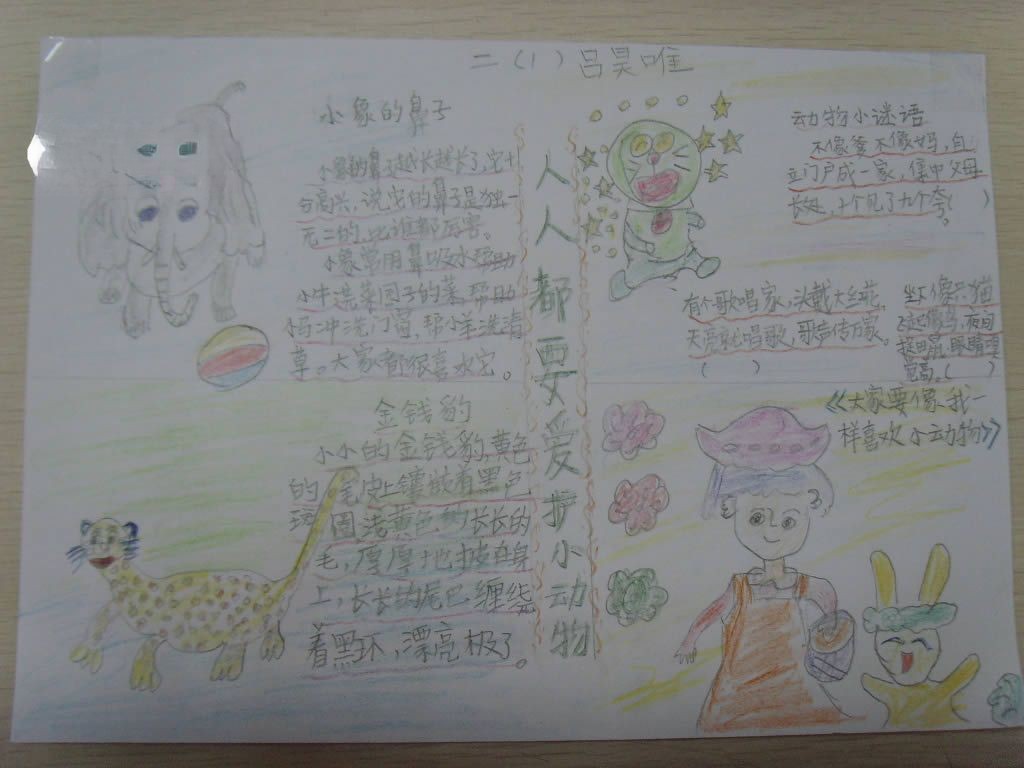 二（1）吕昊唯
小象的鼻子
小象的鼻子越长越长了，它十
分高兴，说我的鼻子是独一
无二的，比谁都厉害。
小象常用鼻吸水帮助
小牛浇菜园子的菜，帮助
小马冲洗门窗，帮小羊洗清
草。大家都很喜欢它。
人人都要爱护小动物
金钱豹
小小的金钱豹，黄色
的毛皮上镶嵌着黑色
斑圈浅黄色的长长的
毛，厚厚地披在身
上，长长的尾巴缠绕
着黑环，漂亮极了。
动物小谜语
不像爹不像妈，自
立门户成一家，集中父母
长处，十个见了九个夸。（ ）
有个歌唱家，头戴大红花，
天天歌唱歌，歌声传万家。
（ ）
坐下像只猫
飞起像鸟，夜间
捉田鼠，眼睛
（ ）
《大家要像我一
样喜欢小动物》